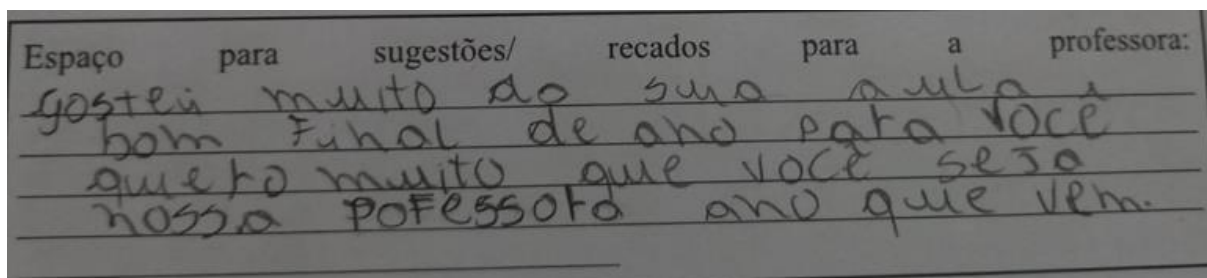 Espaço para sugestões/ recados para a professora:
gostei muito do sua aula i
bom Final de ano para você
quero muito que você seja
nossa poFessora ano que vem.